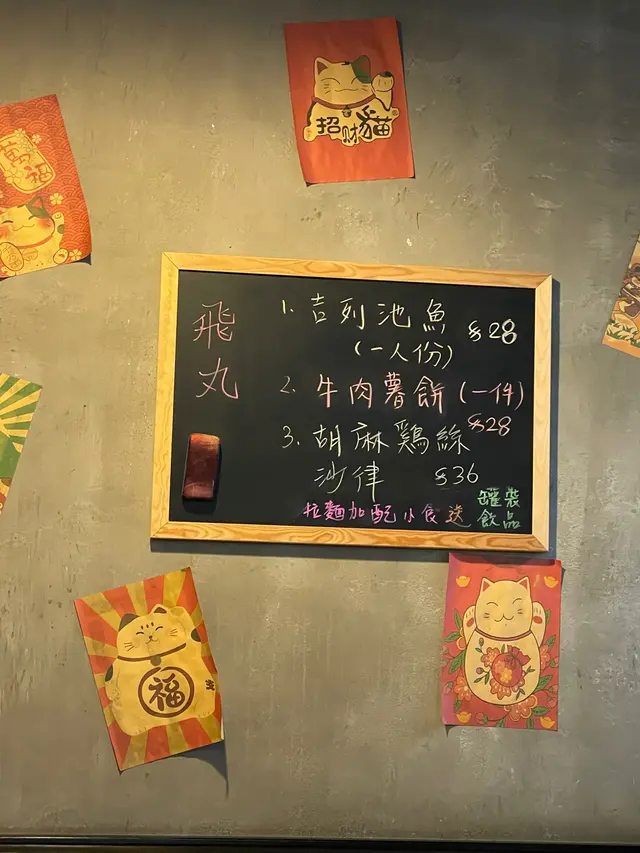 招财貓
萬福
飛丸
1. 吉列池魚 $28
(一人份)
2. 牛肉薯餅(一件)
$28
3. 胡麻鷄絲
沙律 $36
拉麵加配小食送罐裝飲品
福